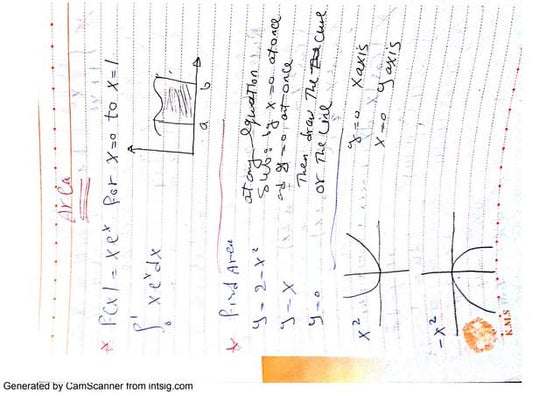 Area
* f(x) = x e^x for x=0 to x=1
∫₀¹ x e^x dx
a b
* find Area
y = 2 - x²
y = x
y = 0
at any equation
Sub: by x=0 at once
and y=0 at once
Then draw The curve
or The line
x²
y=0 x axis
x=0 y axis
-x²
K.M.S
Generated by CamScanner from intsig.com